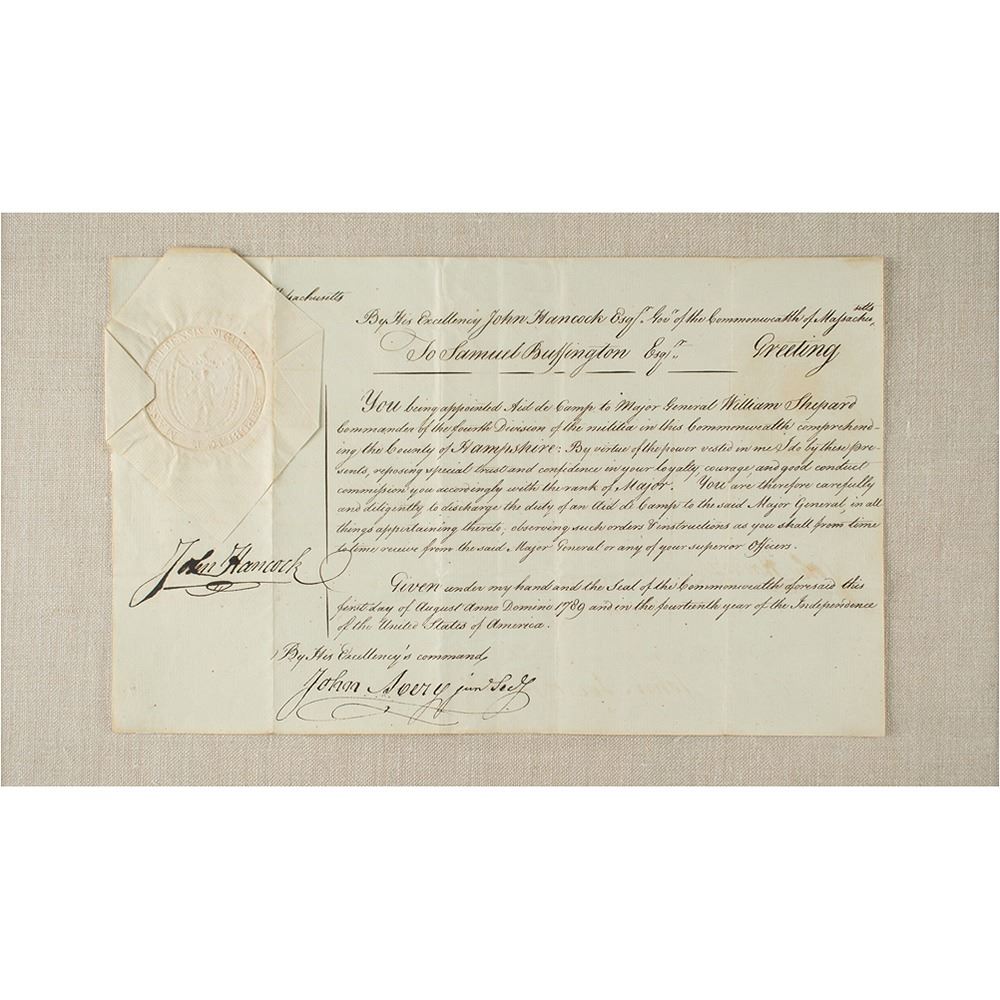 sachusetts
By His Excellency John Hancock Esqr. Govr. of the Commonwealth of Massachu-
setts
To Samuel Buffington Esqr. Greeting
You being appointed Aid de Camp to Major General William Shepard
Commander of the fourth Division of the militia in this Commonwealth comprehend-
ing the County of Hampshire: By virtue of the power vested in me I do by these Pre-
sents, reposing special trust and confidence in your loyalty courage, and good conduct
commission you accordingly with the rank of Major. You are therefore carefully
and diligently to discharge the duty of an Aid de Camp to the said Major General, in all
things appertaining thereto, observing such orders & instructions as you shall from time
to time receive from the said Major General or any of your superior Officers.
John Hancock
Given under my hand and the Seal of the Commonwealth aforesaid this
first day of August Anno Domini 1789 and in the fourteenth year of the Independence
of the United States of America.
By His Excellency's command,
John Avery junr Secy